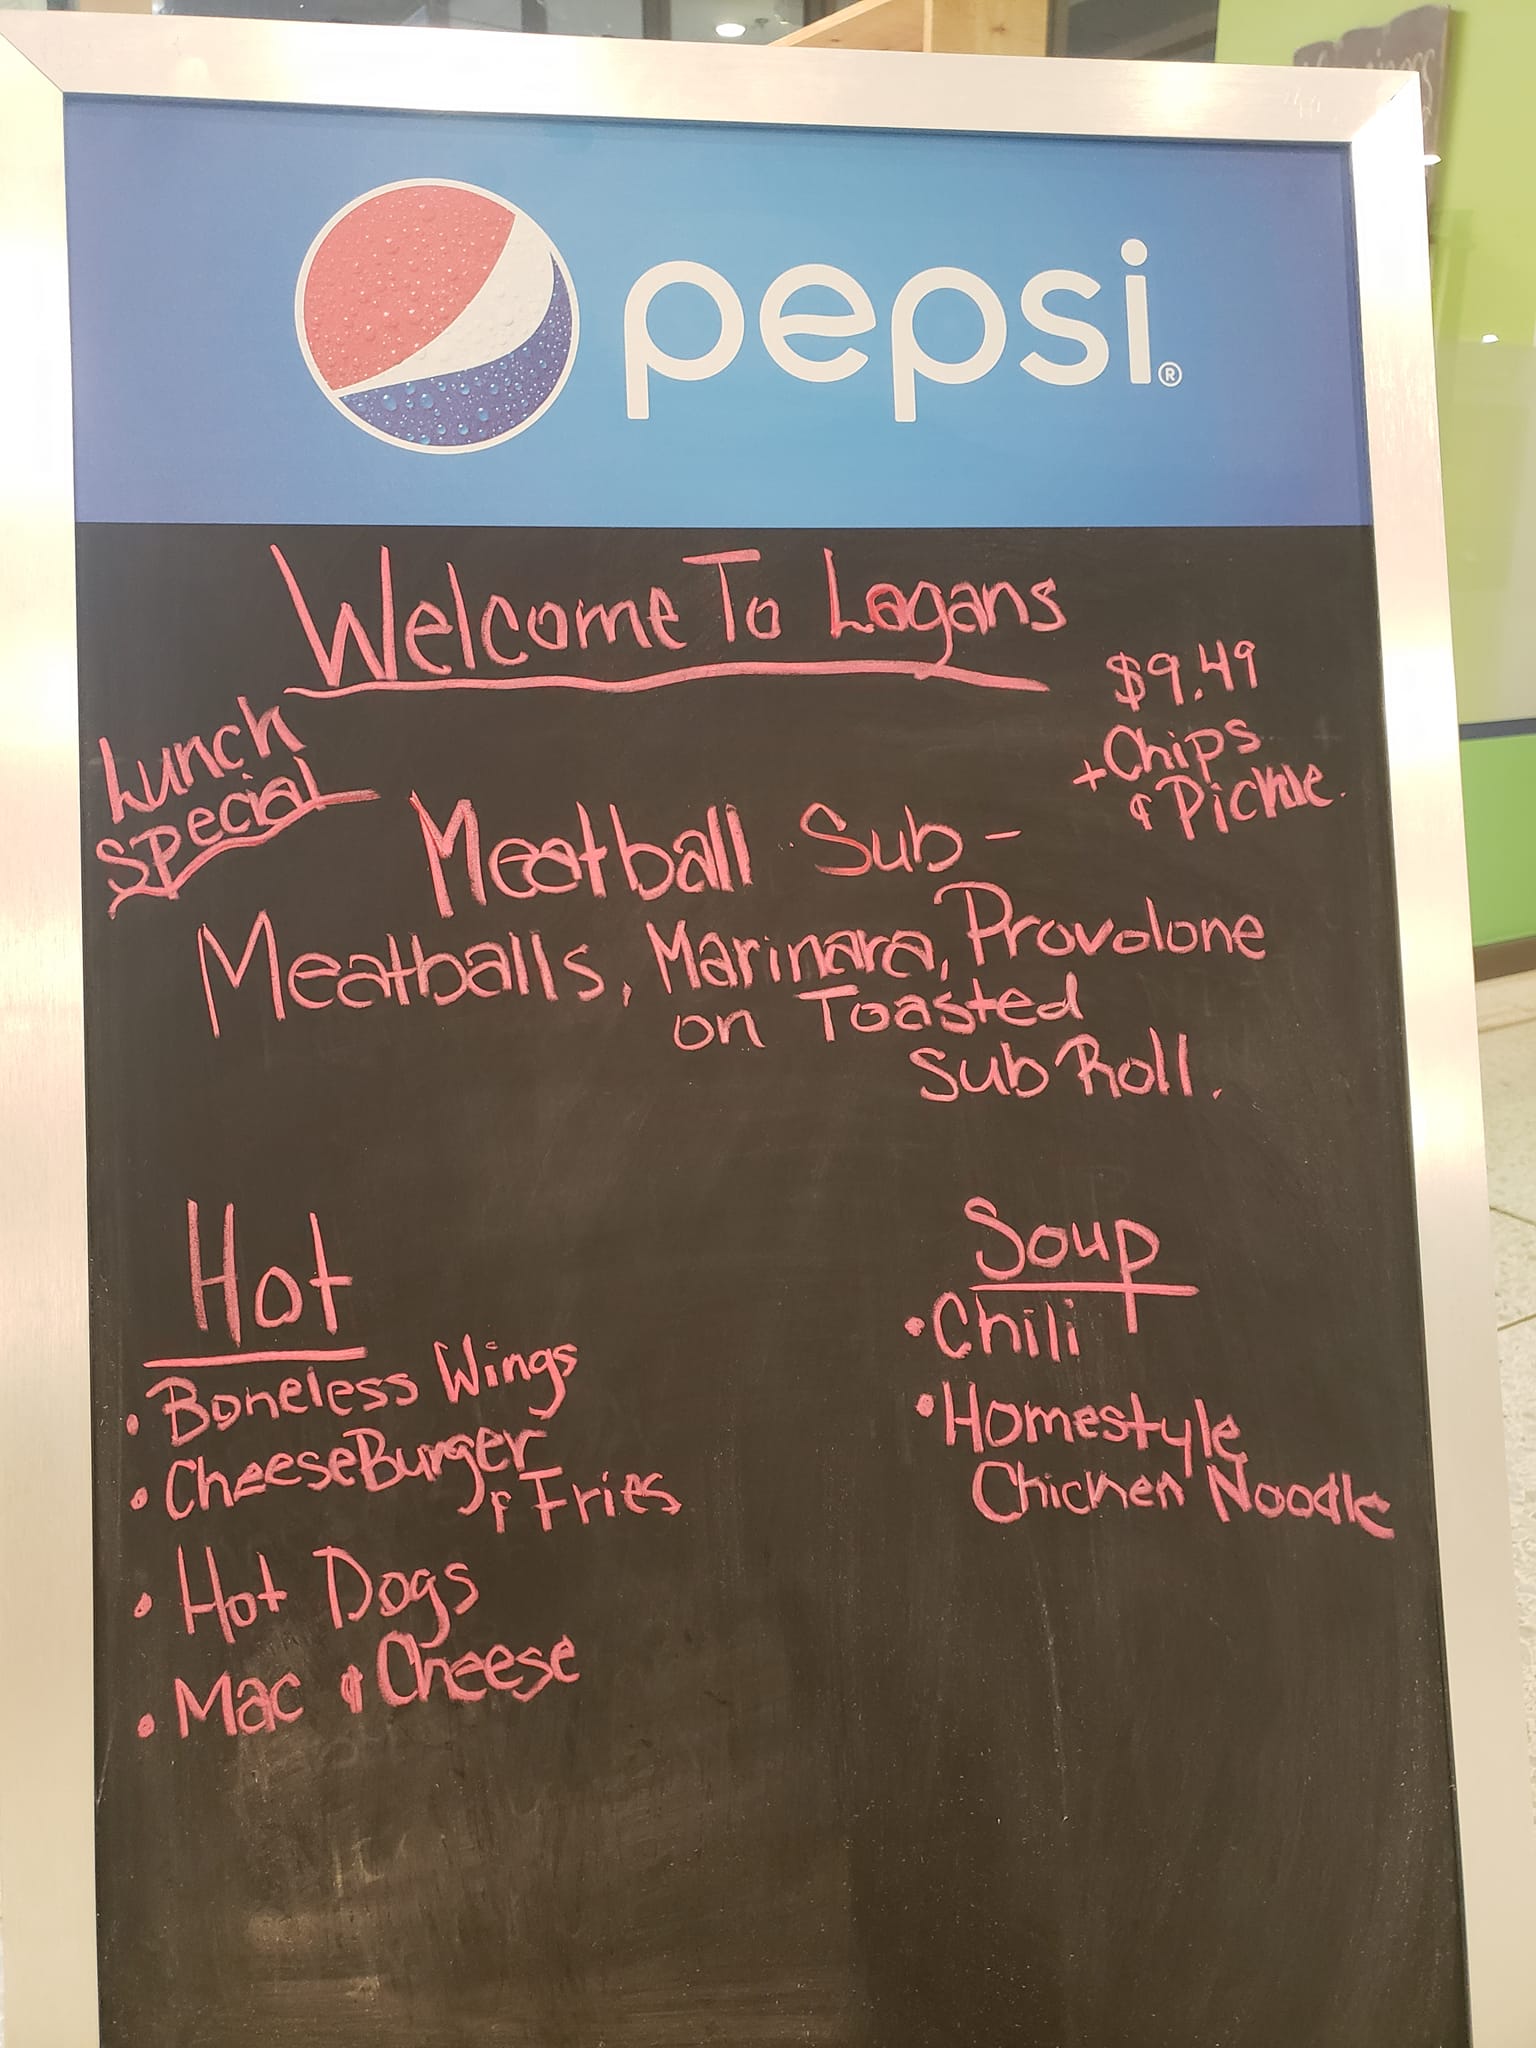 pepsi®
Welcome To Lagans
$9.49
+ Chips
& Pickle.
Lunch
Special
Meatball Sub -
Meatballs, Marinara, Provolone
on Toasted
Sub Roll.
Hot
• Boneless Wings
• CheeseBurger
& Fries
• Hot Dogs
• Mac & Cheese
Soup
• Chili
• Homestyle
Chicken Noodle